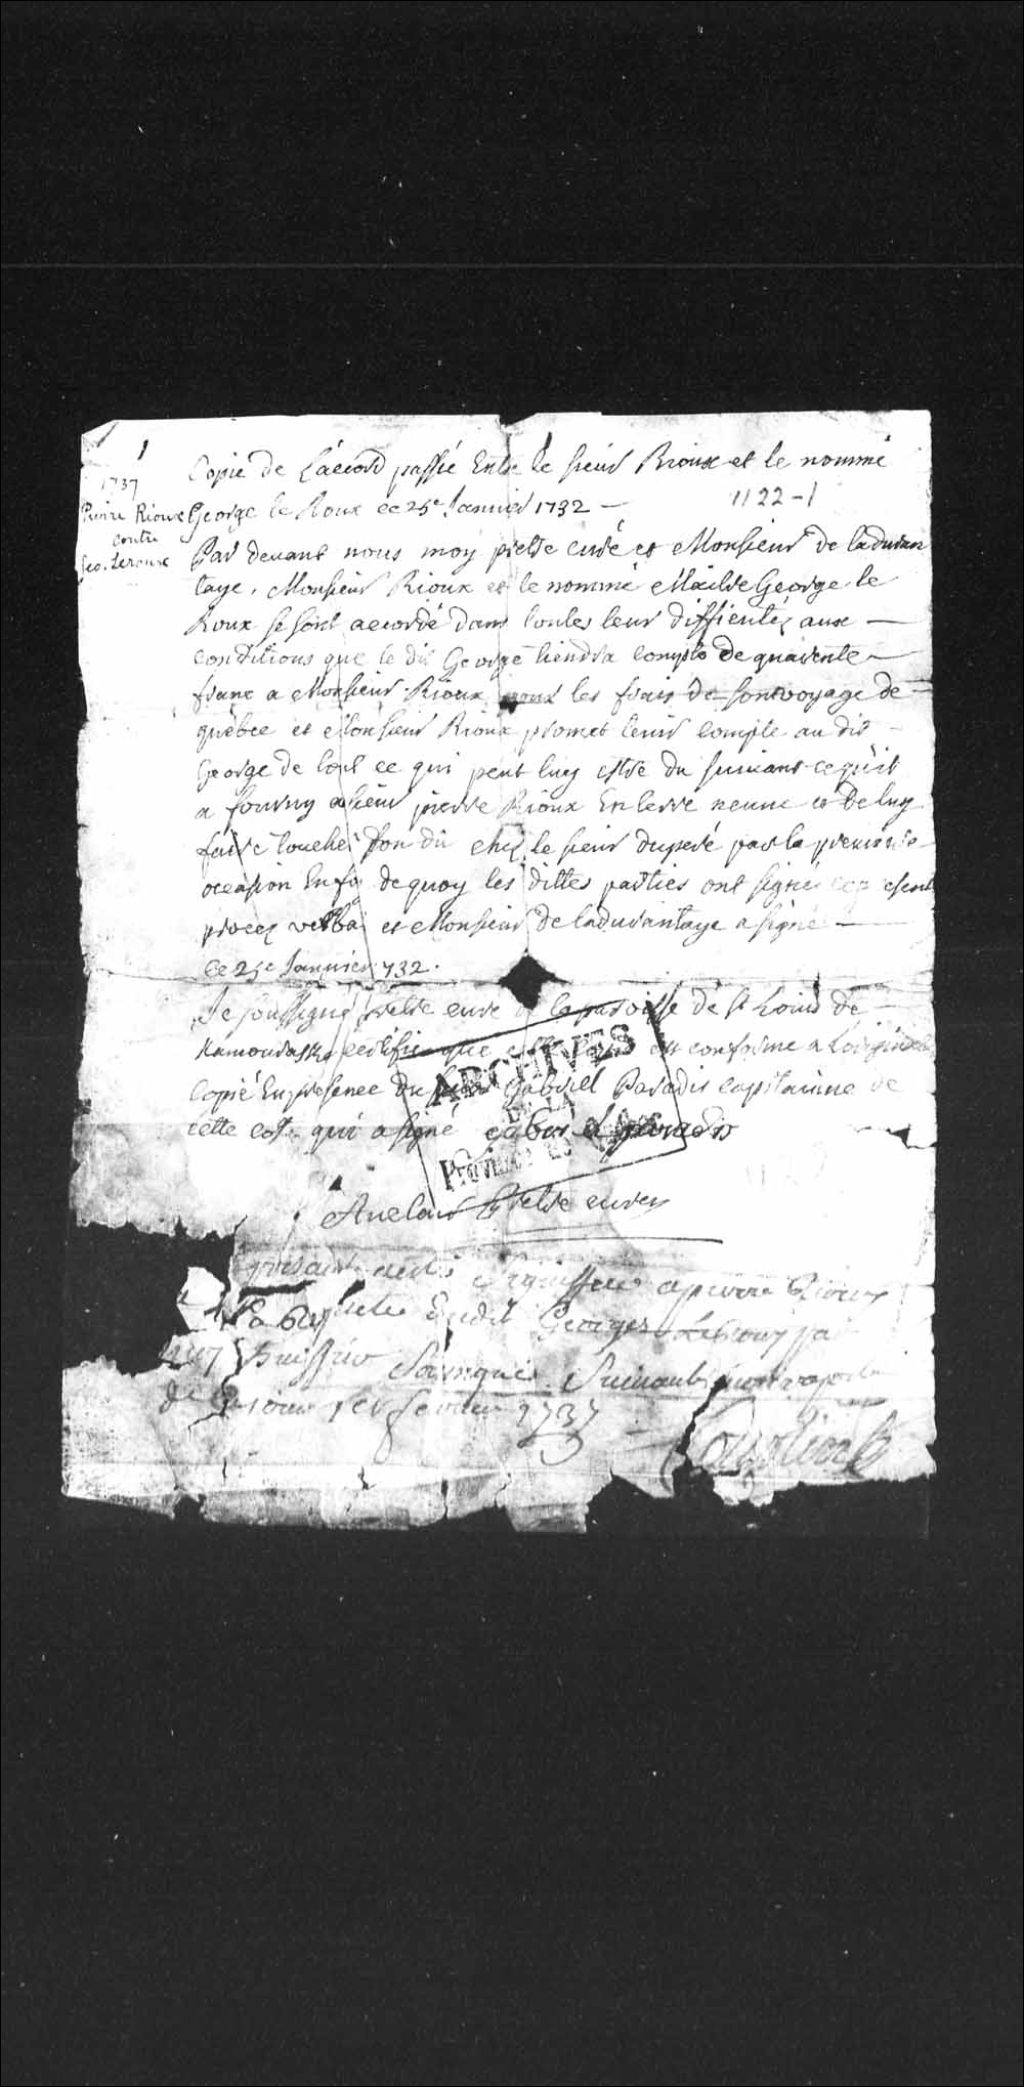 1
1737
Pierre Rioux
contre
Geo. Leroux
1122-1
Copie de L'acord passé Entre le sieur Rioux et le nommé
George le Roux ce 25e Janvier 1732 —
Par devant nous moy pretre curé et Monsieur de laduran
taye, Monsieur Rioux et le nommé Maitre George le
Roux se sont accordé dans toutes leur difficultéz aux —
conditions que le dit George tiendra compte de quarente —
franc a Monsieur Rioux pour les frais de son voyage de —
quebec et Monsieur Rioux promet tenir compte au dit —
George de tout ce qui peut luy estre du suivant ce qu'il
a fourny a sieur pierre Rioux En terre neuve et De luy
faire toucher son dû chez le sieur duperé par la premiere
occasion En foy de quoy les dittes parties ont signé ce present
procez verbal et Monsieur de ladurantaye a signé —
Ce 25e Janvier 1732.
Je soussigné pretre curé de la paroisse de St Louis de —
Kamouraska certifie que cette copie est conforme a Loriginal
Copié En presence du sieur Gabriel Paradis capitaine de
cette coste qui a signé gabriel paradis
ARCHIVES
DE LA
PROVINCE DE
Auclair Pretre curé
signiffiee a pierre Rioux
La Requeste dudit Georges Leroux par
huissier Soussigné Suivant mon raport
de Ce jour 1er fevrier 1737